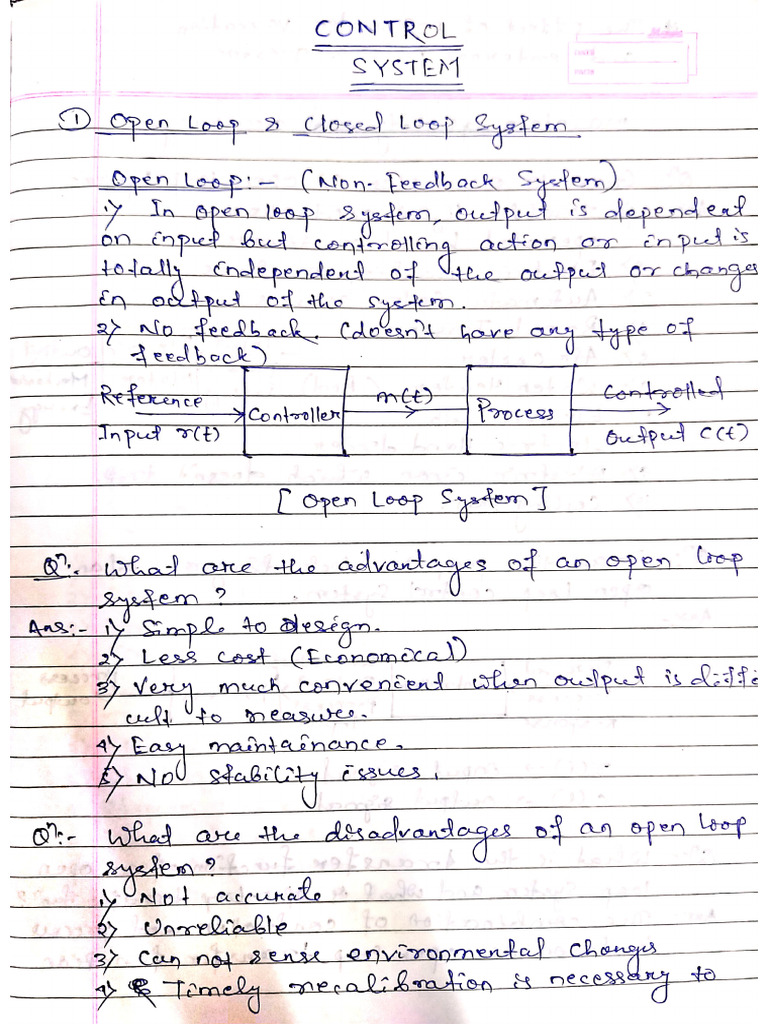 CONTROL
SYSTEM
① Open Loop & Closed Loop System
Open Loop:- (Non-Feedback System)
1) In open loop system, output is dependent
on input but controlling action or input is
totally independent of the output or changes
in output of the system.
2) No feedback. (doesn't have any type of
feedback)
Reference
Input r(t)
Controller
m(t)
Process
Controlled
Output C(t)
[ Open Loop System ]
Qn:- What are the advantages of an open loop
system?
Ans:- 1) Simple to design.
2) Less cost (Economical)
3) Very much convenient when output is diffi
cult to measure.
4) Easy maintainance.
5) No stability issues.
Qn:- What are the disadvantages of an open loop
system?
1) Not accurate
2) Unreliable
3) Can not sense environmental changes
4) Timely recalibration is necessary to